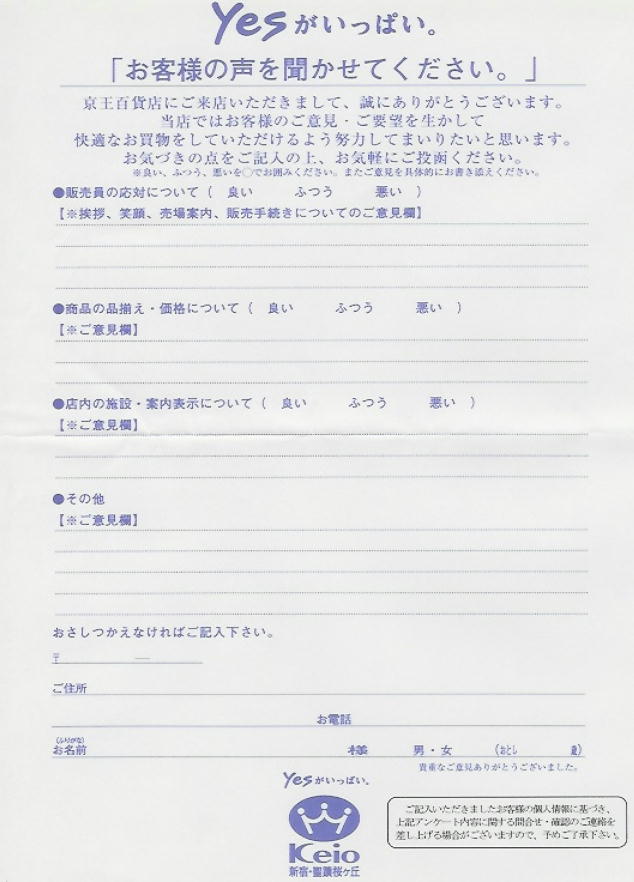 Yesがいっぱい。
「お客様の声を聞かせてください。」
京王百貨店にご来店いただきまして、誠にありがとうございます。
当店ではお客様のご意見・ご要望を生かして
快適なお買物をしていただけるよう努力してまいりたいと思います。
お気づきの点をご記入の上、お気軽にご投函ください。
※良い、ふつう、悪いを○でお囲みください。またご意見を具体的にお書き添えください。
●販売員の応対について ( 良い ふつう 悪い )
【※挨拶、笑顔、売場案内、販売手続きについてのご意見欄】
●商品の品揃え・価格について ( 良い ふつう 悪い )
【※ご意見欄】
●店内の施設・案内表示について ( 良い ふつう 悪い )
【※ご意見欄】
●その他
【※ご意見欄】
おさしつかえなければご記入下さい。
〒 ―
ご住所
お電話
(ふりがな)
お名前 様 男・女 (おとし 歳)
貴重なご意見ありがとうございました。
Yesがいっぱい。
Keio
新宿・聖蹟桜ヶ丘
ご記入いただきましたお客様の個人情報に基づき、
上記アンケート内容に関する問合せ・確認のご連絡を
差し上げる場合がございますので、予めご了承下さい。